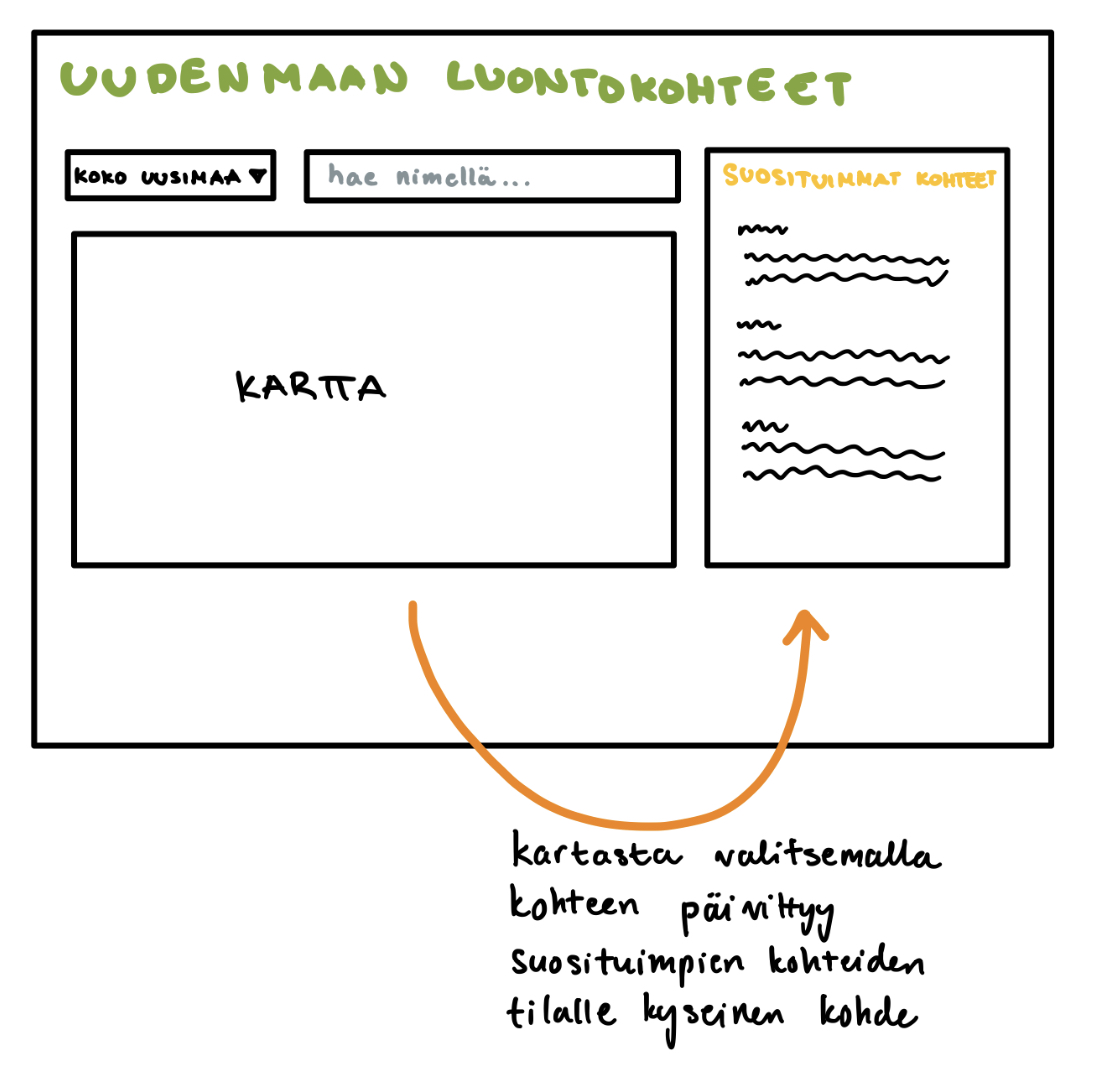 UUDENMAAN LUONTOKOHTEET
KOKO UUSIMAA ▼
hae nimellä...
SUOSITUIMMAT KOHTEET
KARTTA
kartasta valitsemalla
kohteen päivittyy
suosituimpien kohteiden
tilalle kyseinen kohde